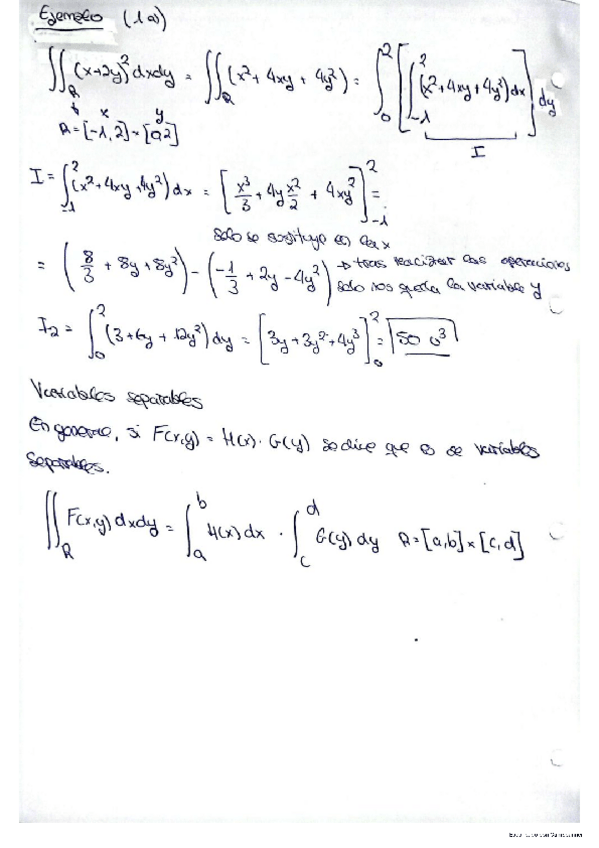 Ejemplo (1a)
∬_R (x+2y)² dxdy = ∬_R (x² + 4xy + 4y²) = ∫_0^2 [∫_{-1}^2 (x²+4xy+4y²) dx] dy
x y
R = [-1, 2] × [0,2]
I
I = ∫_{-1}^2 (x²+4xy+4y²) dx = [x³/3 + 4y x²/2 + 4xy²]_{-1}^2 =
Solo se sustituye en la x
= (8/3 + 8y + 8y²) - (-1/3 + 2y - 4y²) → tras realizar las operaciones
solo nos queda la variable y
I2 = ∫_0^2 (3+6y + 12y²) dy = [3y + 3y² + 4y³]_0^2 = 50 u³
Variables separables
En general, si F(x,y) = H(x) · G(y) se dice que es de variables
separables.
∬_R F(x,y) dxdy = ∫_a^b H(x) dx · ∫_c^d G(y) dy R = [a,b] × [c,d]